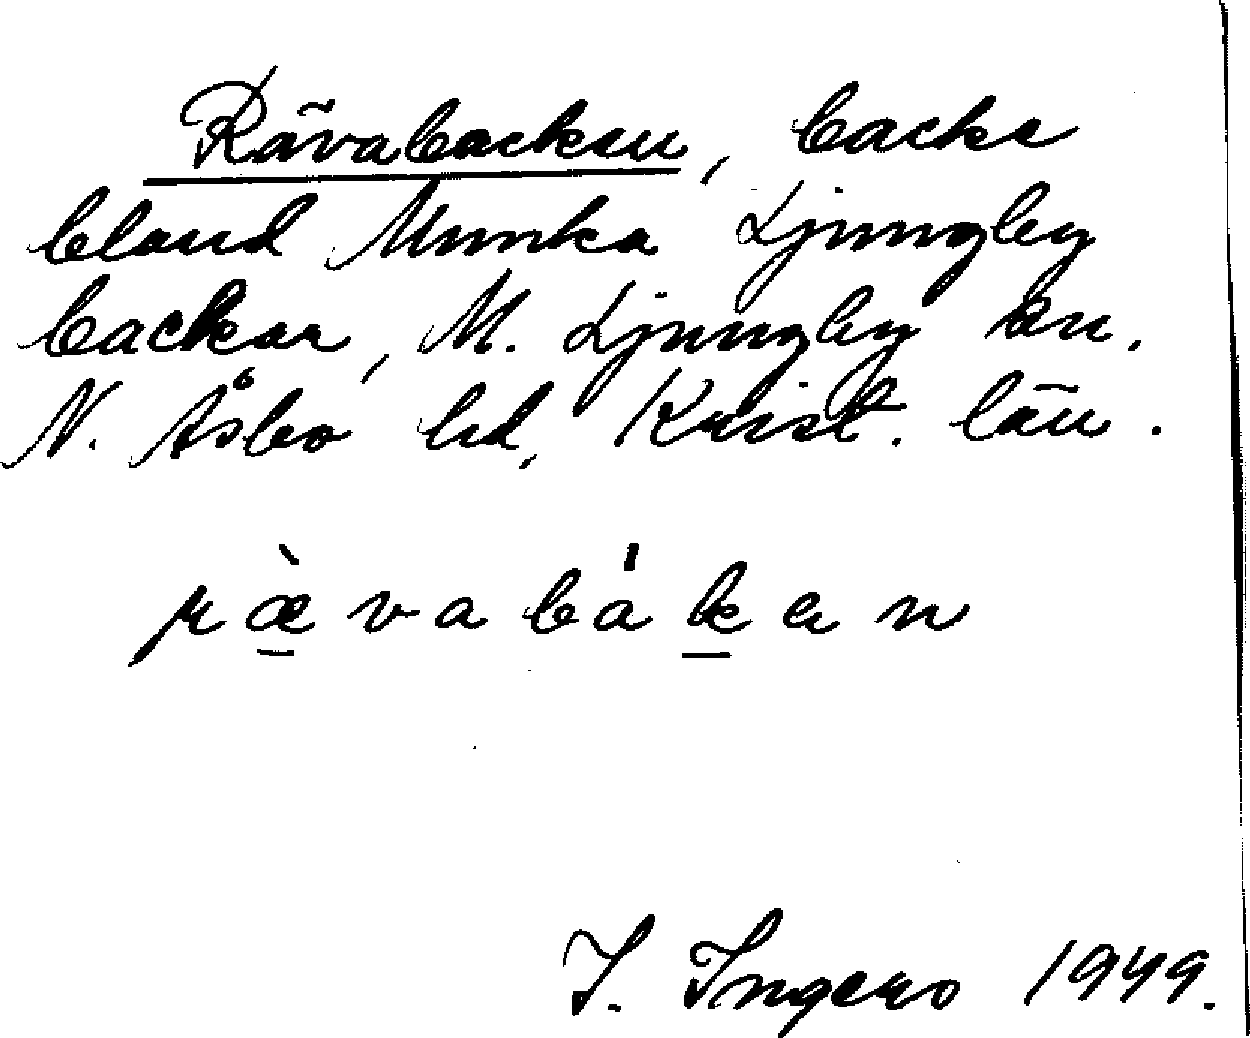 Rävabacken, backe
bland Munka Ljungby
backar, M. Ljungby sn.
N. Åsbo hd, Krist. län.
ræ̀vabákan
I. Ingers 1949.